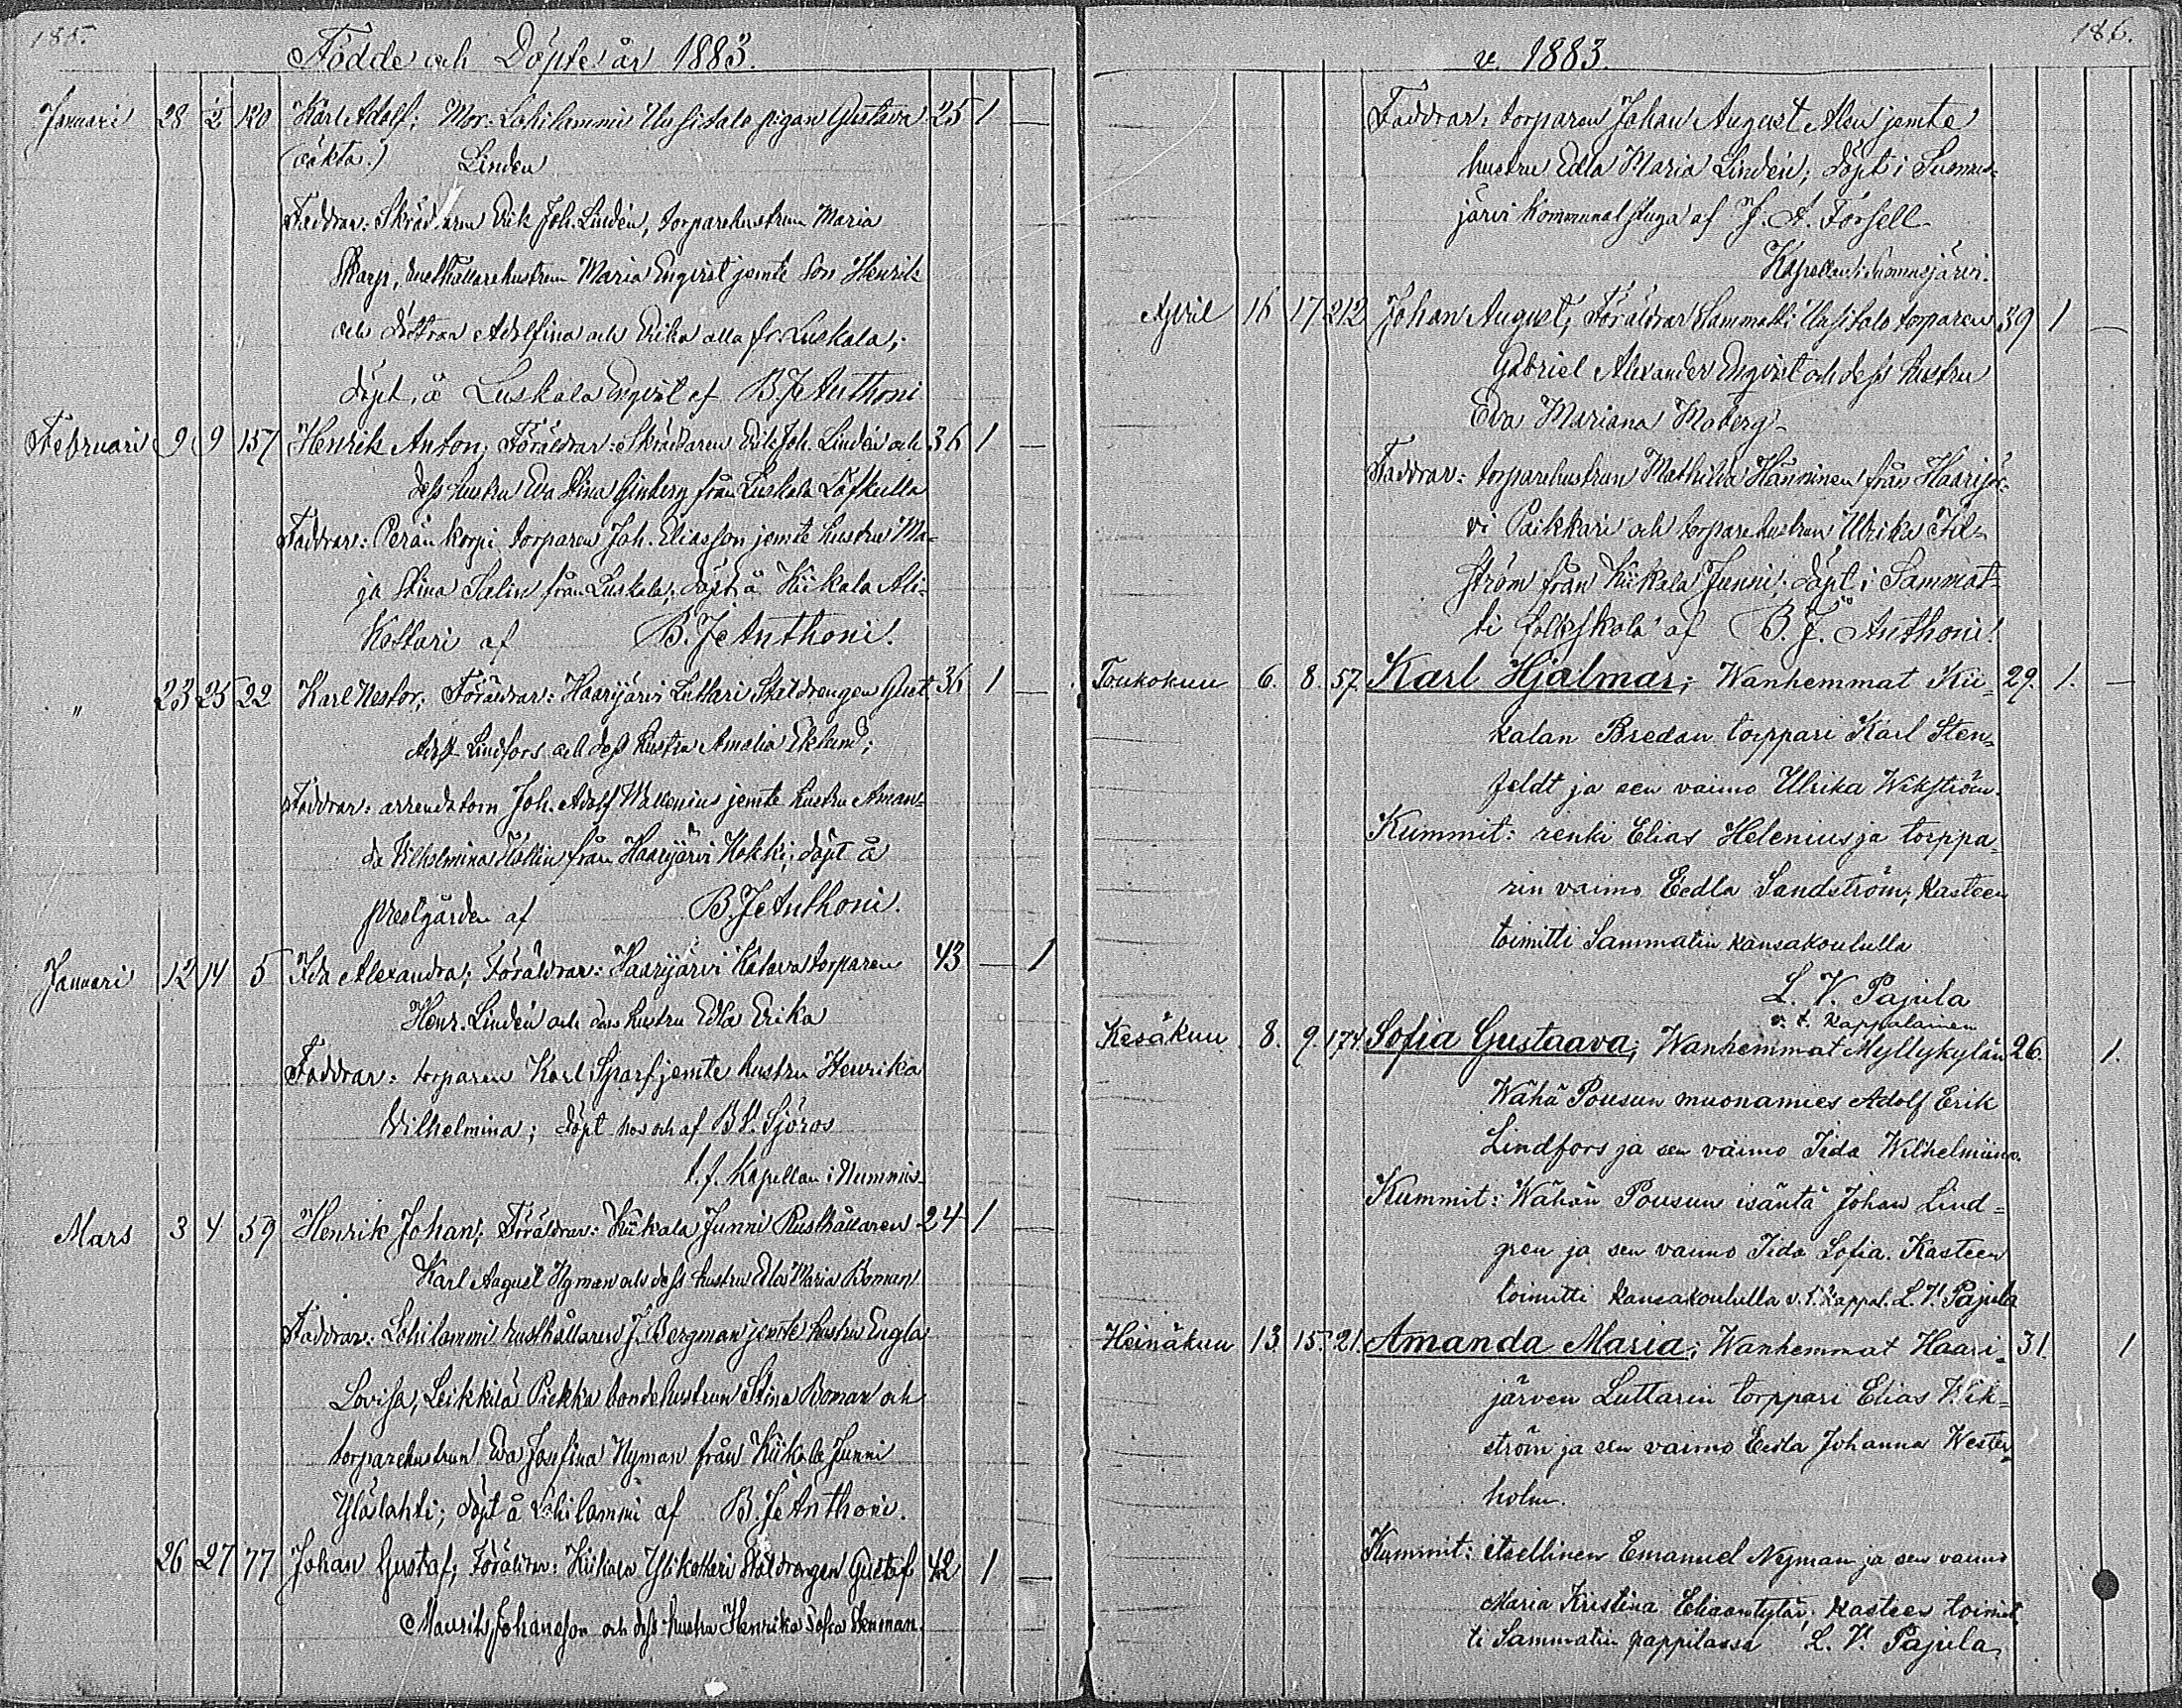 185.
Födde och Döpte år 1883.
Januari 28 2 120 Karl Adolf; Mor: Lohilammi Uusitalo pigan Gustava 25 1 —
(oäkta.) Linden
Faddrar: Skräddaren Erik Joh. Lindén, torparehustrun Maria
Skarp, Maria Enqvist jemte Son Henrik
och döttrar Adolfina och Erika alla fr. Luskala;
döpt å Luskala Enqvist af B. F. Anthoni
Februari 9 9 157 Henrik Anton; Föräldrar: Skräddaren Erik Joh. Lindén och 36 1 —
dess hustru Eva Stina Ginberg från Luskala Löfkulla
Faddrar: Perän korpi torparen Joh. Eliasson jemte hustru Ma-
ja Stina Salin från Luskala; döpt å Kiikala Ali-
Kettari af B. F. Anthoni.
" 23 25 22 Karl Nestor; Föräldrar: Haarijärvi Luttari Staldrengen Gust. 36 1 —
Adolf Lindfors och dess hustru Amalia Eklund;
Faddrar: arrendatorn Joh. Adolf Wallenius jemte hustru Aman-
da Vilhelmina från Haarijärvi Hokki; döpt å
prestgården af B. F. Anthoni.
Januari 12 14 5 Ida Alexandra; Föräldrar: Haarijärvi Katava torparen 43 — 1
Henr. Lindén och dess hustru Edla Erika
Faddrar: torparen Karl Sparf jemte hustru Henrika
Vilhelmina; döpt hos och af B. V. Sjöros
t. f. Kapellan i Nummis
Mars 3 4 59 Henrik Johan; Föräldrar: Kiikala Junni Rusthållaren 24 1 —
Karl August Nyman och dess hustru Edla Maria Boman
Faddrar: Lohilammi rusthållaren J. Bergman jemte hustru Engla
Lovisa, Leikkilä Piekka bondehustrun Stina Boman och
torparehustrun Eva Josefina Nyman från Kiikala Junni
Yläslahti; döpt å Lohilammi af B. F. Anthoni.
26 27 77 Johan Gustaf; Föräldrar: Kiikala Ylikettari Staldrengen Gustaf 42 1 —
Maurits Johansson och dess hustru Henrika Sofia Stenman.
186.
v. 1883.
Faddrar: torparen Johan August Alen jemte
hustru Edla Maria Lindén; döpt i Suomus-
järvi Kommunal stuga af J. A. Forsell
Kapellan i Suomusjärvi.
April 16 17 212 Johan August; Föräldrar Sammatti Uusitalo torparen 39 1 —
Gabriel Alexander Enqvist och dess hustru
Eva Mariana Moberg
Faddrar: torparehustrun Mathilda Hänninen från Haarijär-
vi Paikkari och torparehustrun Ulrika Fil-
ström från Kiikala Junni; döpt i Sammat-
ti folkskola af B. F. Anthoni.
Toukokuu 6. 8. 57. Karl Hjalmar; Wanhemmat Kii- 29. 1. —
kalan Bredan torppari Karl Sten-
feldt ja sen vaimo Ulrika Wikström.
Kummit: renki Elias Helenius ja torppa-
rin vaimo Eedla Sandström; Kasteen
toimitti Sammatin kansakoululla
L. V. Pajula
v. t. kappalainen
Kesäkuu 8. 9. 174. Sofia Gustaava; Wanhemmat Myllykylän 26. 1.
Wähä Pousun muonamies Adolf Erik
Lindfors ja sen vaimo Iida Wilhelmiina.
Kummit: Wähän Pousun isäntä Johan Lind-
gren ja sen vaimo Iida Sofia. Kasteen
toimitti kansakoululla v. t. kappal. L. V. Pajula
Heinäkuu 13 15. 21. Amanda Maria; Wanhemmat Haari- 31. 1
järven Luttarin torppari Elias Wik-
ström ja sen vaimo Eedla Johanna Wester-
holm.
Kummit: itsellinen Emanuel Nyman ja sen vaimo
Maria Kristina Eliaantytär; kasteen toimit-
ti Sammatin pappilassa L. V. Pajula.